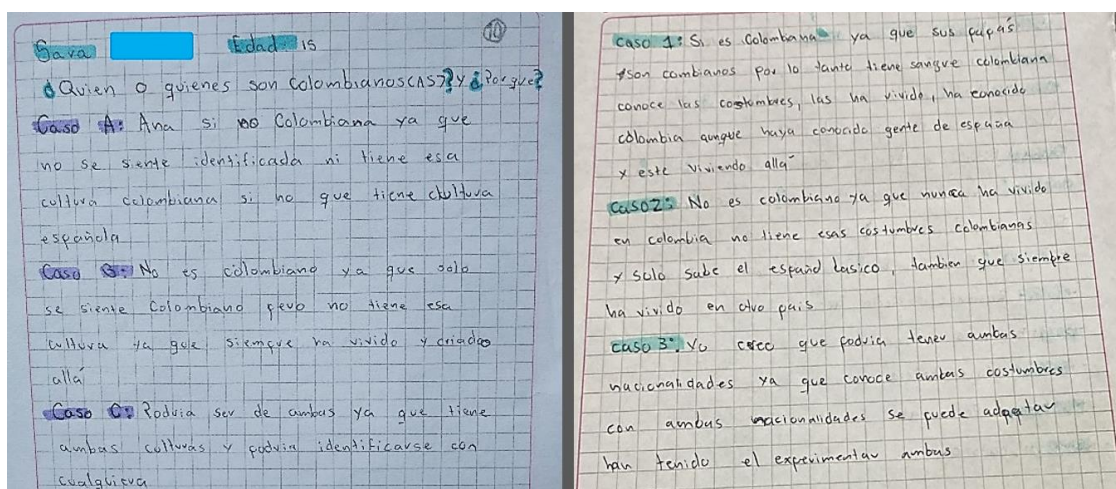 10
Sara Edad 15
¿Quien o quienes son colombianos(AS)? y ¿Porque?
Caso A: Ana si no Colombiana ya que
no se siente identificada ni tiene esa
cultura colombiana si no que tiene cultura
española
Caso B: No es colombiano ya que solo
se siente Colombiano pero no tiene esa
cultura ya que siempre ha vivido y criado
allá
Caso C: Podria ser de ambas ya que tiene
ambas culturas y podria identificarse con
cualquiera
caso 1: Si es Colombiana ya que sus papás
son combianos por lo tanto tiene sangre colombiana
conoce las costumbres, las ha vivido, ha conocido
colombia aunque haya conocido gente de españa
y este viviendo allá
Caso 2: No es colombiano ya que nunca ha vivido
en colombia no tiene esas costumbres colombianas
y solo sabe el español basico, tambien que siempre
ha vivido en otro pais
caso 3: Yo creo que podria tener ambas
nacionalidades ya que conoce ambas costumbres
con ambas nacionalidades se puede adaptar
han tenido el experimentar ambas